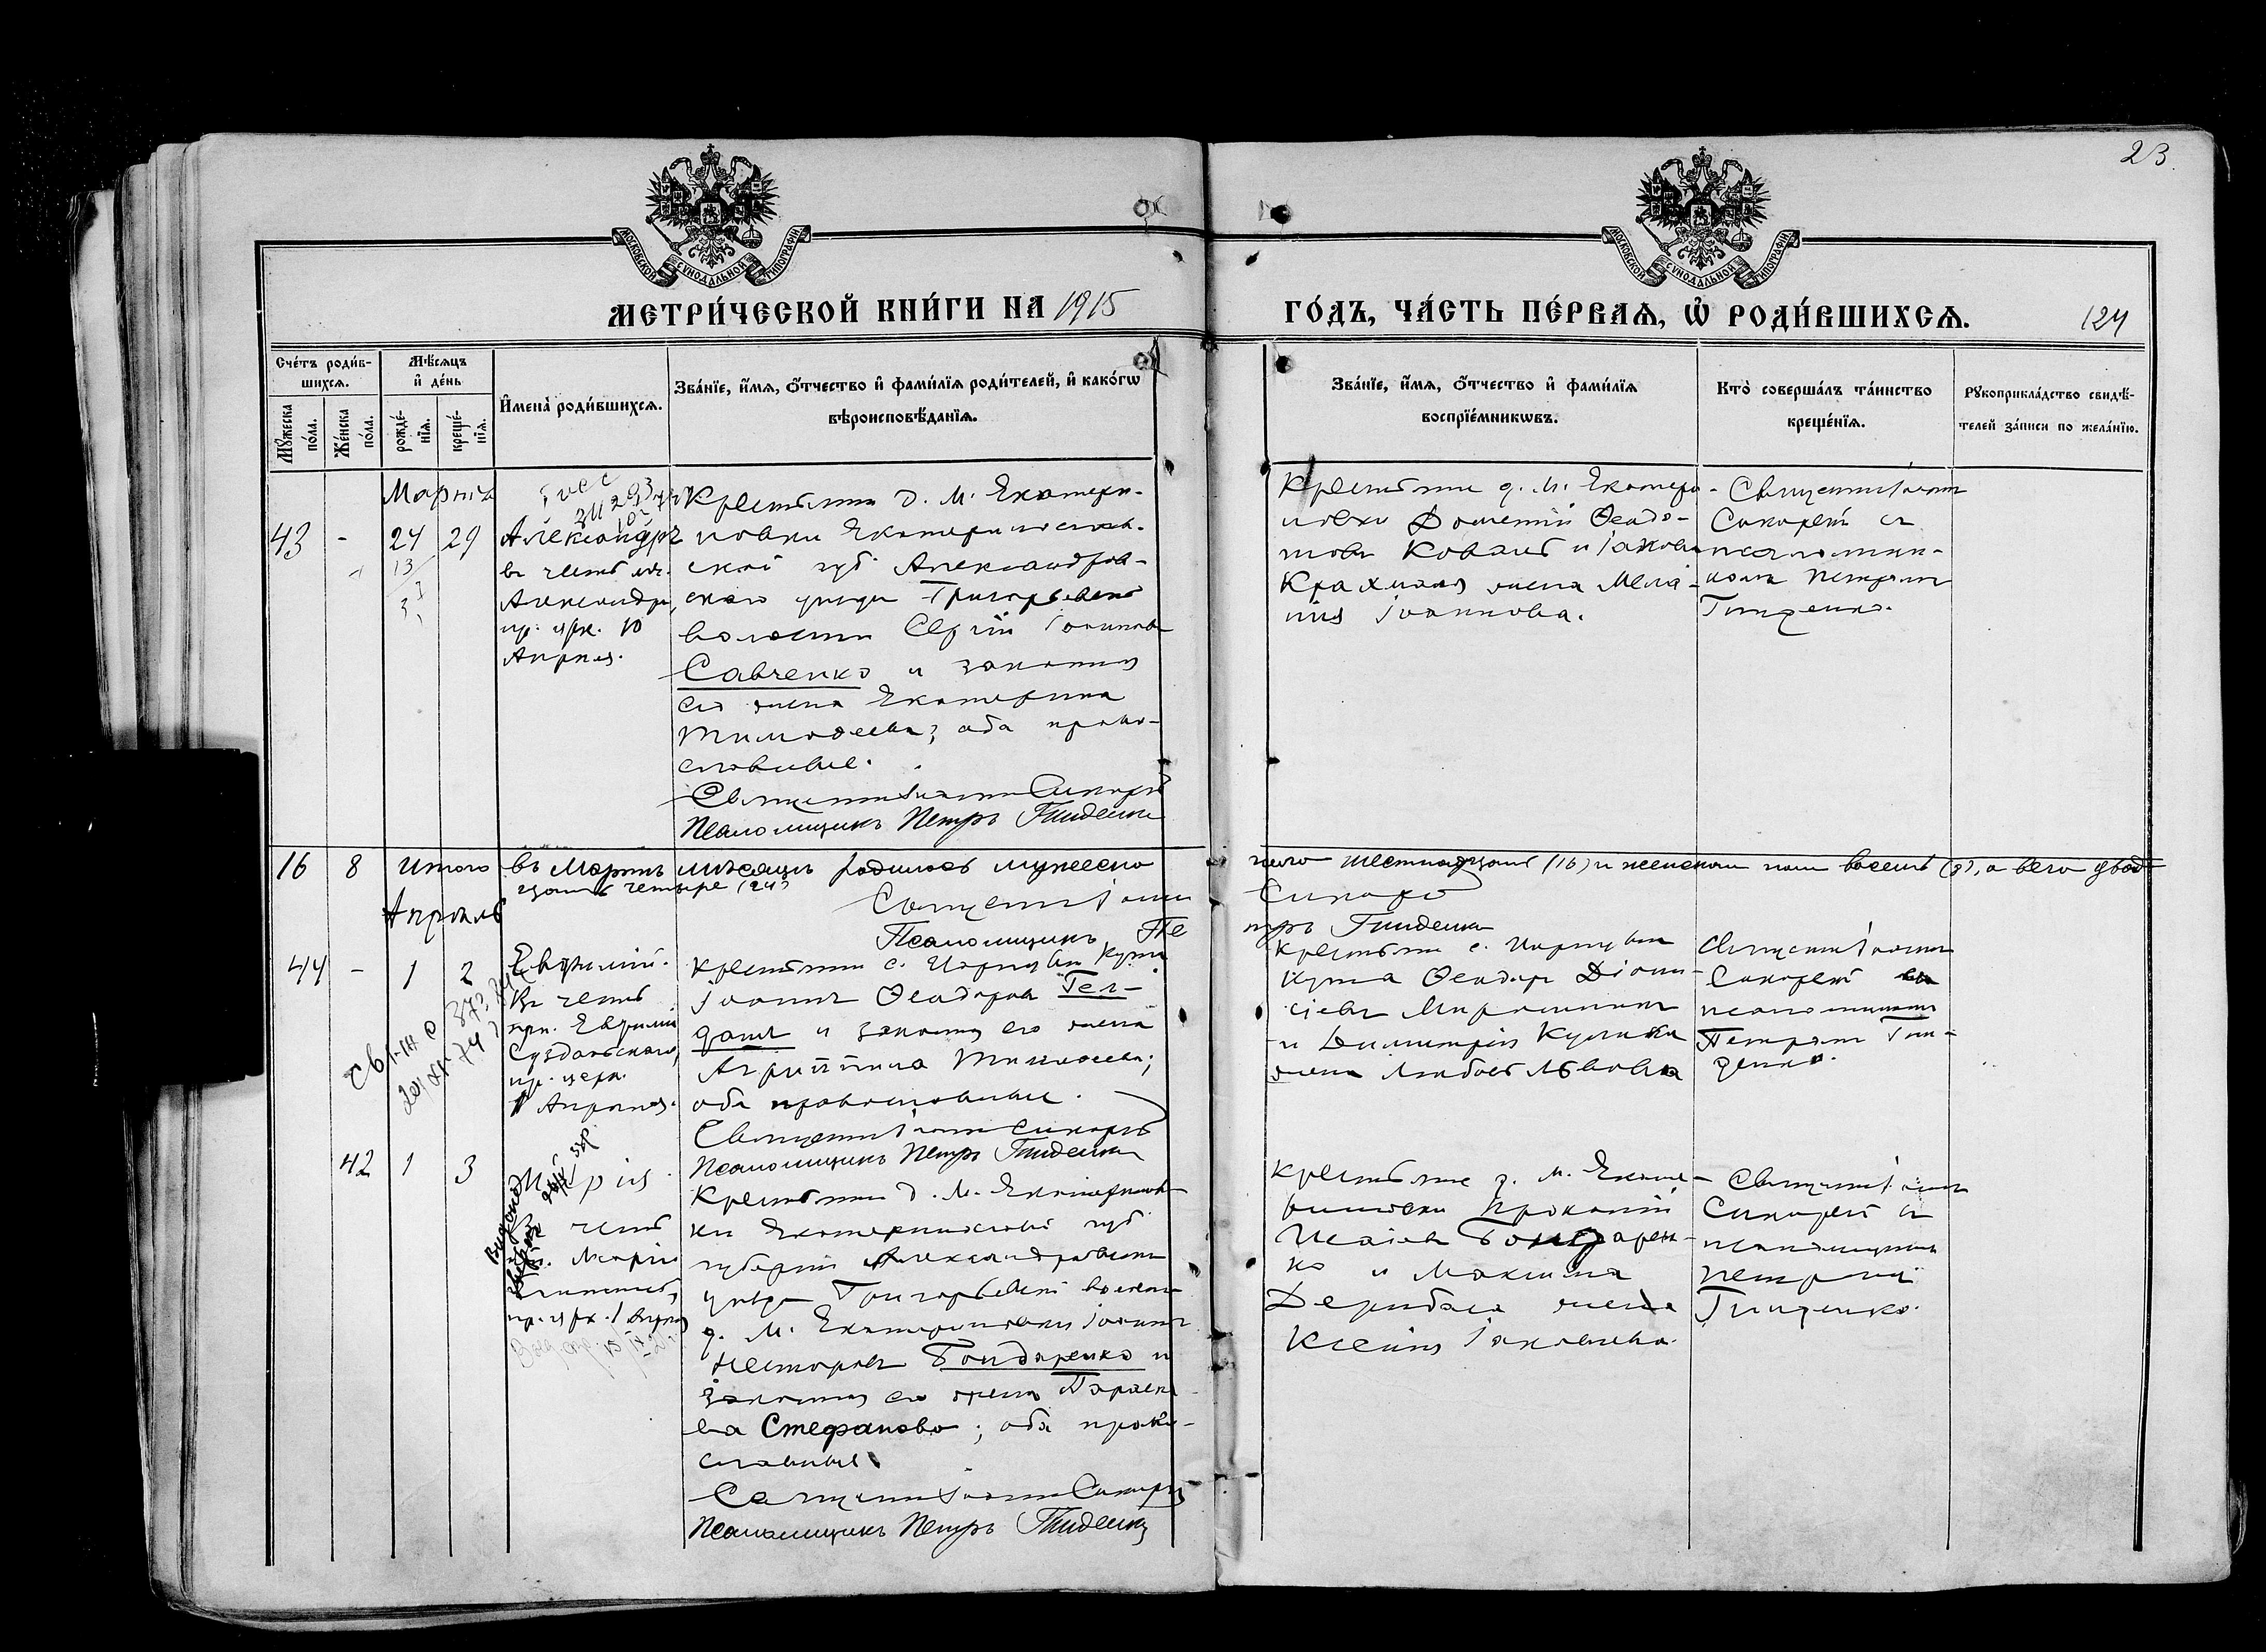 23
МОСКОВСКОЙ СѴНОДАЛЬНОЙ ТИПОГРАФІИ
МОСКОВСКОЙ СѴНОДАЛЬНОЙ ТИПОГРАФІИ
МЕТРИ́ЧЕСКОЙ КНИ́ГИ НА 1915
ГО́ДЪ, ЧА́СТЬ ПЕ́РВАѦ, Ѡ҆ РОДИ́ВШИХСѦ.
124
Сче́тъ роди́в-
шихсѧ.
Мꙋ́жеска по́ла.
Же́нска по́ла.
Мѣ́сѧцъ
и҆ де́нь
рожде́-
нїѧ.
креще́-
нїѧ.
И҆мена̀ роди́вшихсѧ.
Зва́нїе, и҆́мѧ, ѻ҆́тчество и҆ фами́лїѧ роди́телей, и҆ како́гѡ
вѣроисповѣ́данїѧ.
Зва́нїе, и҆́мѧ, ѻ҆́тчество и҆ фами́лїѧ
воспрїе́мникѡвъ.
Кто̀ соверша́лъ та́инство
креще́нїѧ.
Рꙋкоприкла́дство свидѣ́-
телей за́писи по жела́нїю.
Марта
43 - 24 29
13
Александръ
въ честь мч.
Александра,
пр. црк. 10
Апреля.
Крестьяне д. М. Екатери-
новки Екатеринослав-
ской губ. Александров-
скаго уѣзда Григорьевской
волости Сергій Іоанновъ
Савченко и законная
его жена Екатерина
Тимофеева; оба право-
славные.
Священникъ Іоаннъ Сикорскій
Псаломщикъ Петръ Гниденко
Крестьяне д. М. Екатери-
новки Дометій Ѳеодо-
товъ Коваль и Іакова
Крахмаля жена Мела-
нія Іоаннова.
Священникъ Іоаннъ
Сикорскій съ
псаломщи-
комъ Петромъ
Гниденко.
16 8 Итого въ Мартѣ мѣсяцѣ родилось мужеско
го шестнадцать (16) и женскаго пола восемь (8), а всего двад
цать четыре (24)
Священникъ Іоаннъ Сикорскій
Псаломщикъ Петръ Гниденко
Апрѣль
44 - 1 2
Евфимій.
Въ честь
прп. Евфимія
Суздальскаго,
пр. церк.
1 Апреля.
Іоаннъ Ѳеодоровъ Гел-
и законная его жена
Агриппина Тимофеева;
оба православные.
Священникъ Іоаннъ Сикорскій
Псаломщикъ Петръ Гниденко
Ѳеодоръ Діони-
сіевъ
и Димитрія Кулика
жена Любовь Львова
Священникъ Іоаннъ
Сикорскій съ
псаломщикомъ
Петромъ Гни-
денко.
42 1 3
Марія
честь
Маріи
Египетс.,
пр. црк. 1 Апреля
Крестьяне д. М. Екатеринов-
ки Екатеринославской губ
губерніи Александровскаго
уѣзда Григорьевской волости
д. М. Екатериновки Іоаннъ
Несторовъ Бондаренко и
законная его жена Параске-
ва Стефанова; оба право-
славные.
Священникъ Іоаннъ Сикорскій
Псаломщикъ Петръ Гниденко
Крестьяне д. М. Екате-
риновки Прокопій
Исаіевъ Бондарен-
ко и Максима
Дерибаса жена
Ксенія Іаковлева.
Священникъ Іоаннъ
Сикорскій съ
псаломщикомъ
Петромъ
Гниденко.